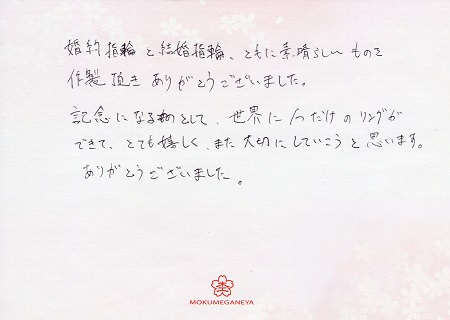 婚約指輪と結婚指輪、ともに素晴らしいものを
作製頂きありがとうございました。
記念になる物として、世界に1つだけのリングが
できて、とても嬉しく、また大切にしていこうと思います。
ありがとうございました。
MOKUMEGANEYA